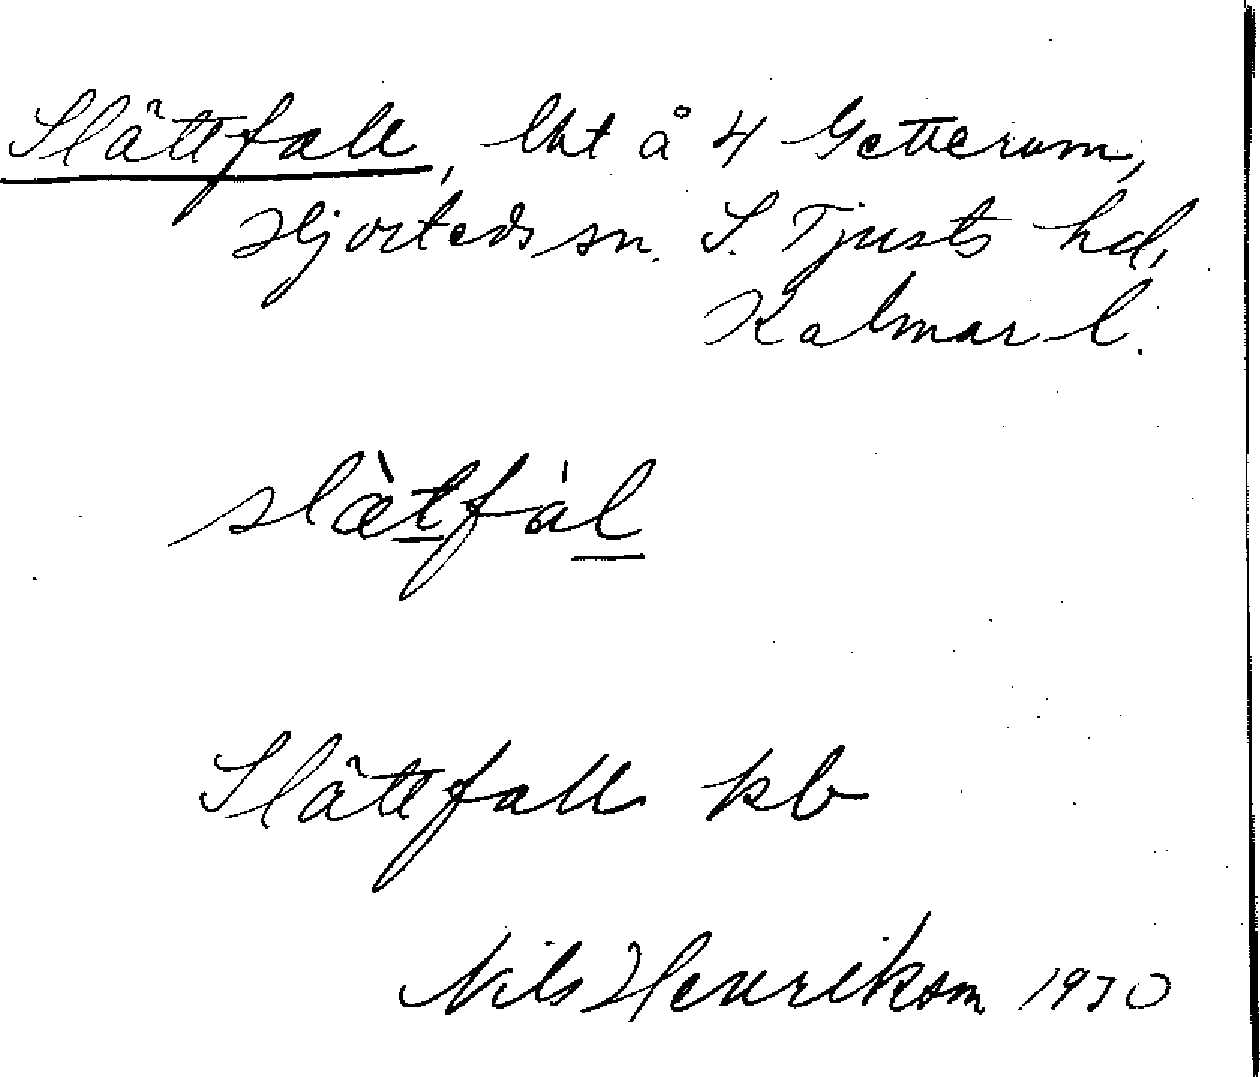 Slättfall, lht å 4 Getterum,
Hjorteds sn. S. Tjusts hd,
Kalmar l.
slæ̀tfàl
Slättfall kb
Nils Henrikson 1930